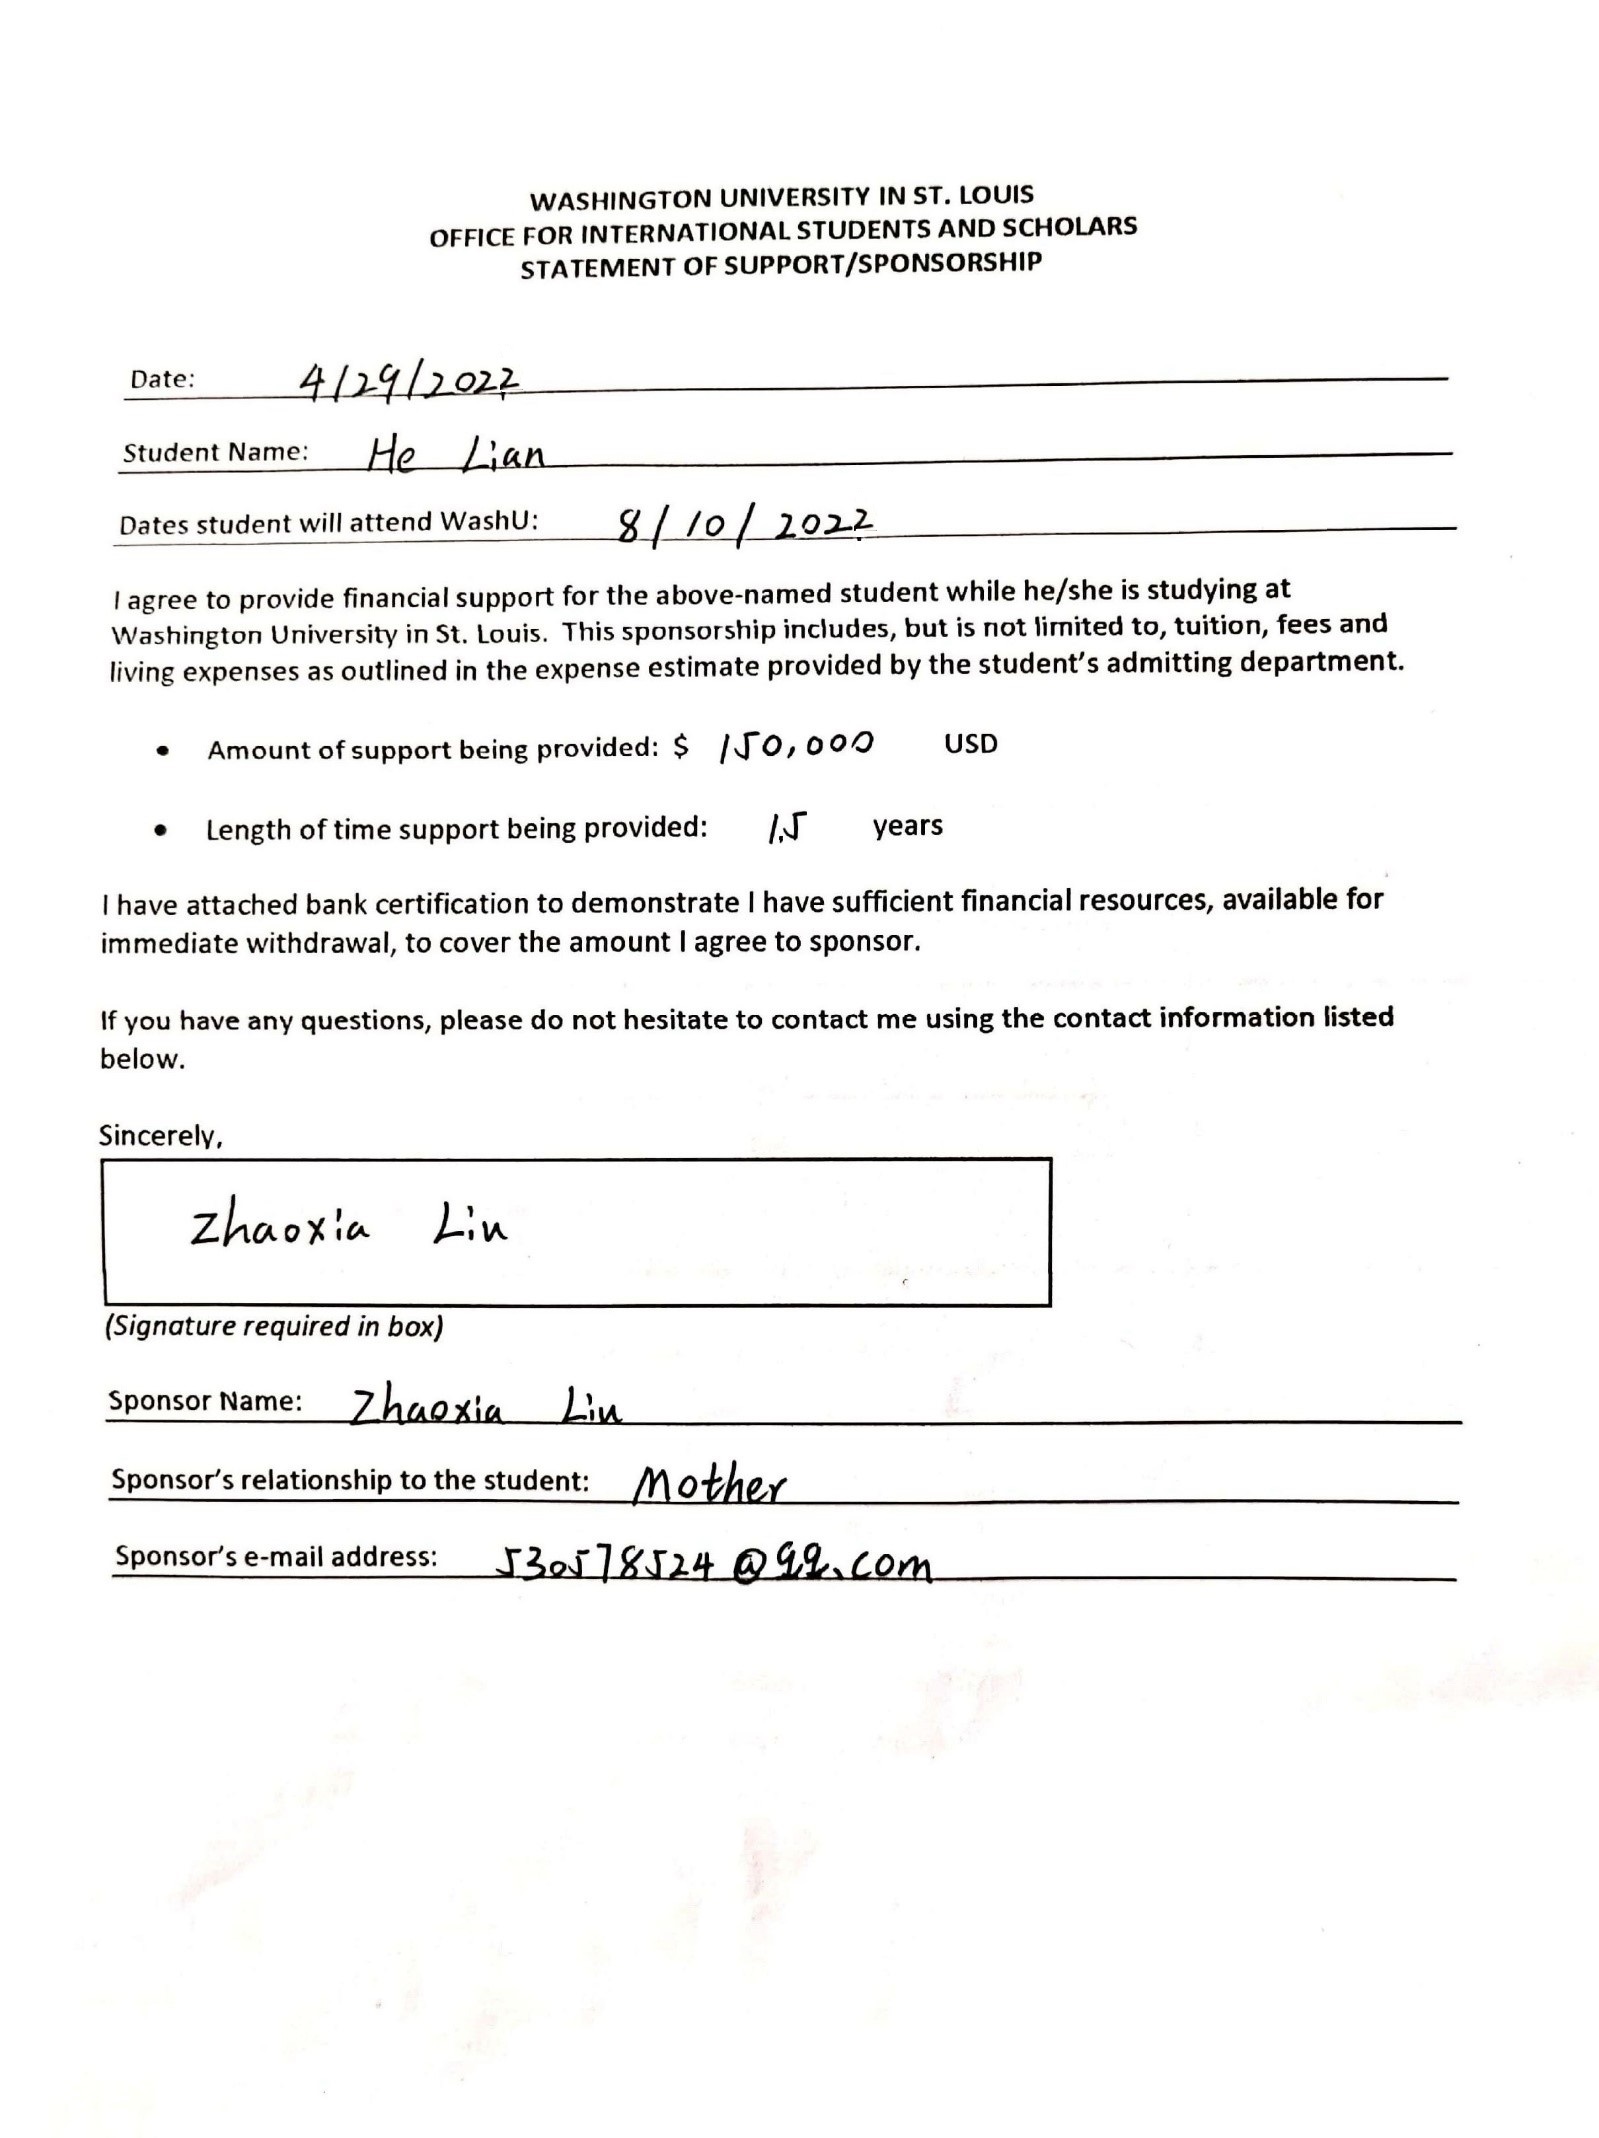 WASHINGTON UNIVERSITY IN ST. LOUIS
OFFICE FOR INTERNATIONAL STUDENTS AND SCHOLARS
STATEMENT OF SUPPORT/SPONSORSHIP
Date: 4/29/2022
Student Name: He Lian
Dates student will attend WashU: 8/10/2022
I agree to provide financial support for the above-named student while he/she is studying at
Washington University in St. Louis. This sponsorship includes, but is not limited to, tuition, fees and
living expenses as outlined in the expense estimate provided by the student's admitting department.
• Amount of support being provided: $ 150,000 USD
• Length of time support being provided: 1.5 years
I have attached bank certification to demonstrate I have sufficient financial resources, available for
immediate withdrawal, to cover the amount I agree to sponsor.
If you have any questions, please do not hesitate to contact me using the contact information listed
below.
Sincerely,
Zhaoxia Lin
(Signature required in box)
Sponsor Name: Zhaoxia Lin
Sponsor's relationship to the student: Mother
Sponsor's e-mail address: 530578524@qq.com